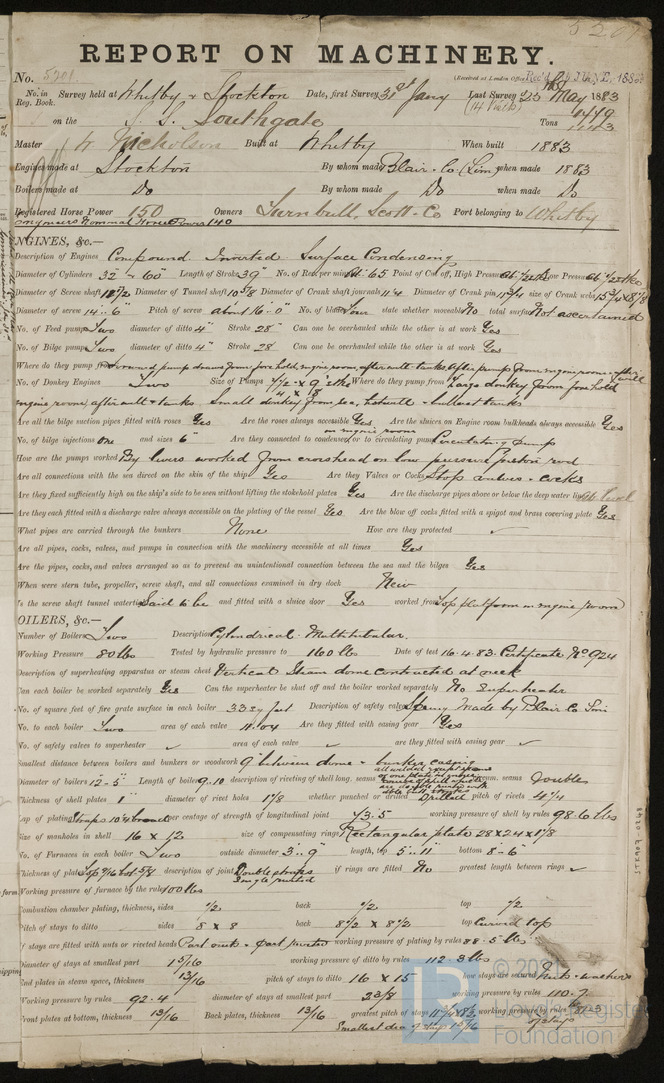 5201
REPORT ON MACHINERY.
No. 5201 (Received at London Office
No. in Survey held at Whitby & Stockton Date, first Survey 31st Jany Last Survey 23 May 1883
Reg. Book. (14 Visits)
on the S.S. Southgate Tons
Master W Nicholson Built at Whitby When built 1883
Engines made at Stockton By whom made Blair & Co (Lim) when made 1883
Boilers made at Do By whom made Do when made Do
Registered Horse Power 150 Owners Turnbull, Scott & Co Port belonging to Whitby
Engineers Nominal Horse Power 140
NGINES, &c.—
Description of Engines Compound Inverted Surface Condensing
Diameter of Cylinders 32" & 60" Length of Stroke 39" No. of Rev. per minute 65 Point of Cut off, High Pressure Low Pressure
Diameter of Screw shaft Diameter of Tunnel shaft 10 5/8 Diameter of Crank shaft journals 11 1/4 Diameter of Crank pin 11 3/4 size of Crank webs
Diameter of screw 14..6" Pitch of screw about 16'..0" No. of blades Four state whether moveable No total surface Not ascertained
No. of Feed pumps Two diameter of ditto 4" Stroke 28" Can one be overhauled while the other is at work Yes
No. of Bilge pumps Two diameter of ditto 4" Stroke 28 Can one be overhauled while the other is at work Yes
Where do they pump from
No. of Donkey Engines Two Size of Pumps Where do they pump from Large donkey from fore hold
engine room, after well & tanks Small donkey from sea, hotwell & ballast tanks
Are all the bilge suction pipes fitted with roses Yes Are the roses always accessible Yes Are the sluices on Engine room bulkheads always accessible Yes
on engine room
No. of bilge injections one and sizes 6" Are they connected to condenser, or to circulating pump Circulating pump
How are the pumps worked By levers worked from crosshead on low pressure piston rod
Are all connections with the sea direct on the skin of the ship Yes Are they Valves or Cocks Stop valves & cocks
Are they fixed sufficiently high on the ship's side to be seen without lifting the stokehold plates Yes Are the discharge pipes above or below the deep water line
Are they each fitted with a discharge valve always accessible on the plating of the vessel Yes Are the blow off cocks fitted with a spigot and brass covering plate Yes
What pipes are carried through the bunkers None How are they protected ✓
Are all pipes, cocks, valves, and pumps in connection with the machinery accessible at all times Yes
Are the pipes, cocks, and valves arranged so as to prevent an unintentional connection between the sea and the bilges Yes
When were stern tube, propeller, screw shaft, and all connections examined in dry dock New
Is the screw shaft tunnel watertight Said to be and fitted with a sluice door Yes worked from Top platform in engine room
OILERS, &c.—
Number of Boilers Two Description Cylindrical Multitubular
Working Pressure 80 lbs Tested by hydraulic pressure to 160 lbs Date of test 16.4.83. Certificate No 924
Description of superheating apparatus or steam chest Vertical steam dome contracted at neck
Can each boiler be worked separately Yes Can the superheater be shut off and the boiler worked separately No Superheater
No. of square feet of fire grate surface in each boiler Description of safety valves Spring Made by Blair Co Lim
No. to each boiler Two area of each valve 11.04 Are they fitted with easing gear Yes
No. of safety valves to superheater ✓ area of each valve ✓ are they fitted with easing gear ✓
Smallest distance between boilers and bunkers or woodwork 9" between dome & bunker casing
Diameter of boilers 12-5" Length of boilers 9..10 description of riveting of shell long. seams circum. seams Doubles
Thickness of shell plates 1" diameter of rivet holes 1 1/8 whether punched or drilled Drilled pitch of rivets 4 1/4
Lap of plating per centage of strength of longitudinal joint 73.5 working pressure of shell by rules 98.6 lbs
Size of manholes in shell 16 x 12 size of compensating rings Rectangular plate 28 x 24 x 1 1/8
No. of Furnaces in each boiler Two outside diameter 3'..9" length, top 5'..11" bottom 8'-6"
Thickness of plates description of joint Double straps single riveted if rings are fitted No greatest length between rings ✓
Working pressure of furnace by the rules 100 lbs
Combustion chamber plating, thickness, sides 1/2 back 1/2 top 1/2
Pitch of stays to ditto sides 8 x 8 back 8 1/2 x 8 1/2 top Curved top
If stays are fitted with nuts or riveted heads Part nuts & part riveted working pressure of plating by rules 88.5 lbs
Diameter of stays at smallest part 1 5/16 working pressure of ditto by rules 112.3 lbs
End plates in steam space, thickness 13/16 pitch of stays to ditto 16 x 15 how stays are secured nuts & washers
Working pressure by rules 92.4 diameter of stays at smallest part 2 3/8 working pressure by rules 110.7
Front plates at bottom, thickness 13/16 Back plates, thickness 13/16 greatest pitch of stays working pressure by rules
Smallest dia of stays 1 5/16 of stays
© 2021
Lloyd's Register
Foundation
STK907-0248